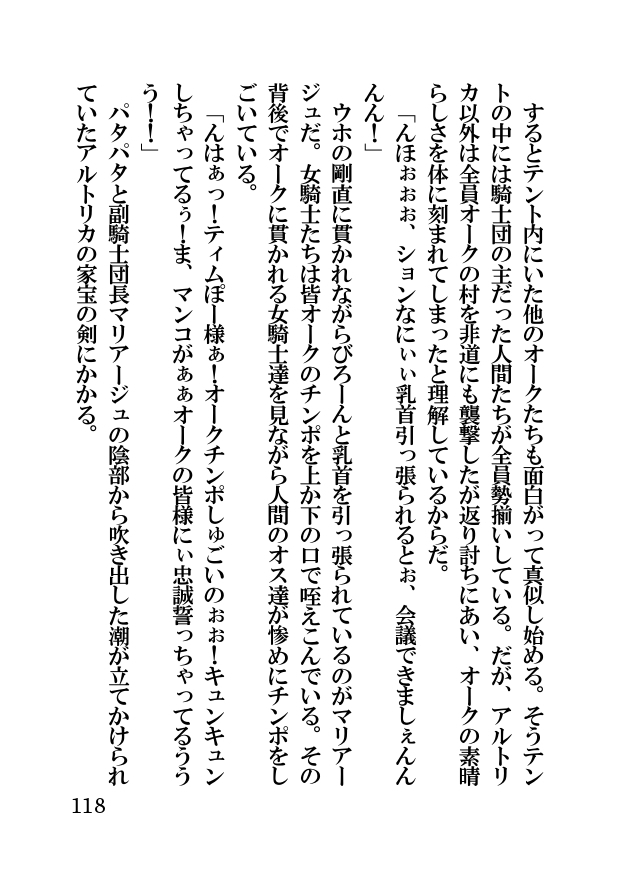 するとテント内にいた他のオークたちも面白がって真似し始める。そうテン
トの中には騎士団の主だった人間たちが全員勢揃いしている。だが、アルトリ
カ以外は全員オークの村を非道にも襲撃したが返り討ちにあい、オークの素晴
らしさを体に刻まれてしまったと理解しているからだ。
「んほぉぉぉ、ションなにぃぃ乳首引っ張られるとぉ、会議できましぇんん
んん！」
ウホの剛直に貫かれながらびろーんと乳首を引っ張られているのがマリアー
ジュだ。女騎士たちは皆オークのチンポを上か下の口で咥えこんでいる。その
背後でオークに貫かれる女騎士達を見ながら人間のオス達が惨めにチンポをし
ごいている。
「んはぁっ！ティムぽー様ぁ！オークチンポしゅごいのぉぉ！キュンキュン
しちゃってるぅ！ま、マンコがぁぁオークの皆様にぃ忠誠誓っちゃってるうう
う！！」
パタパタと副騎士団長マリアージュの陰部から吹き出した潮が立てかけられ
ていたアルトリカの家宝の剣にかかる。
118